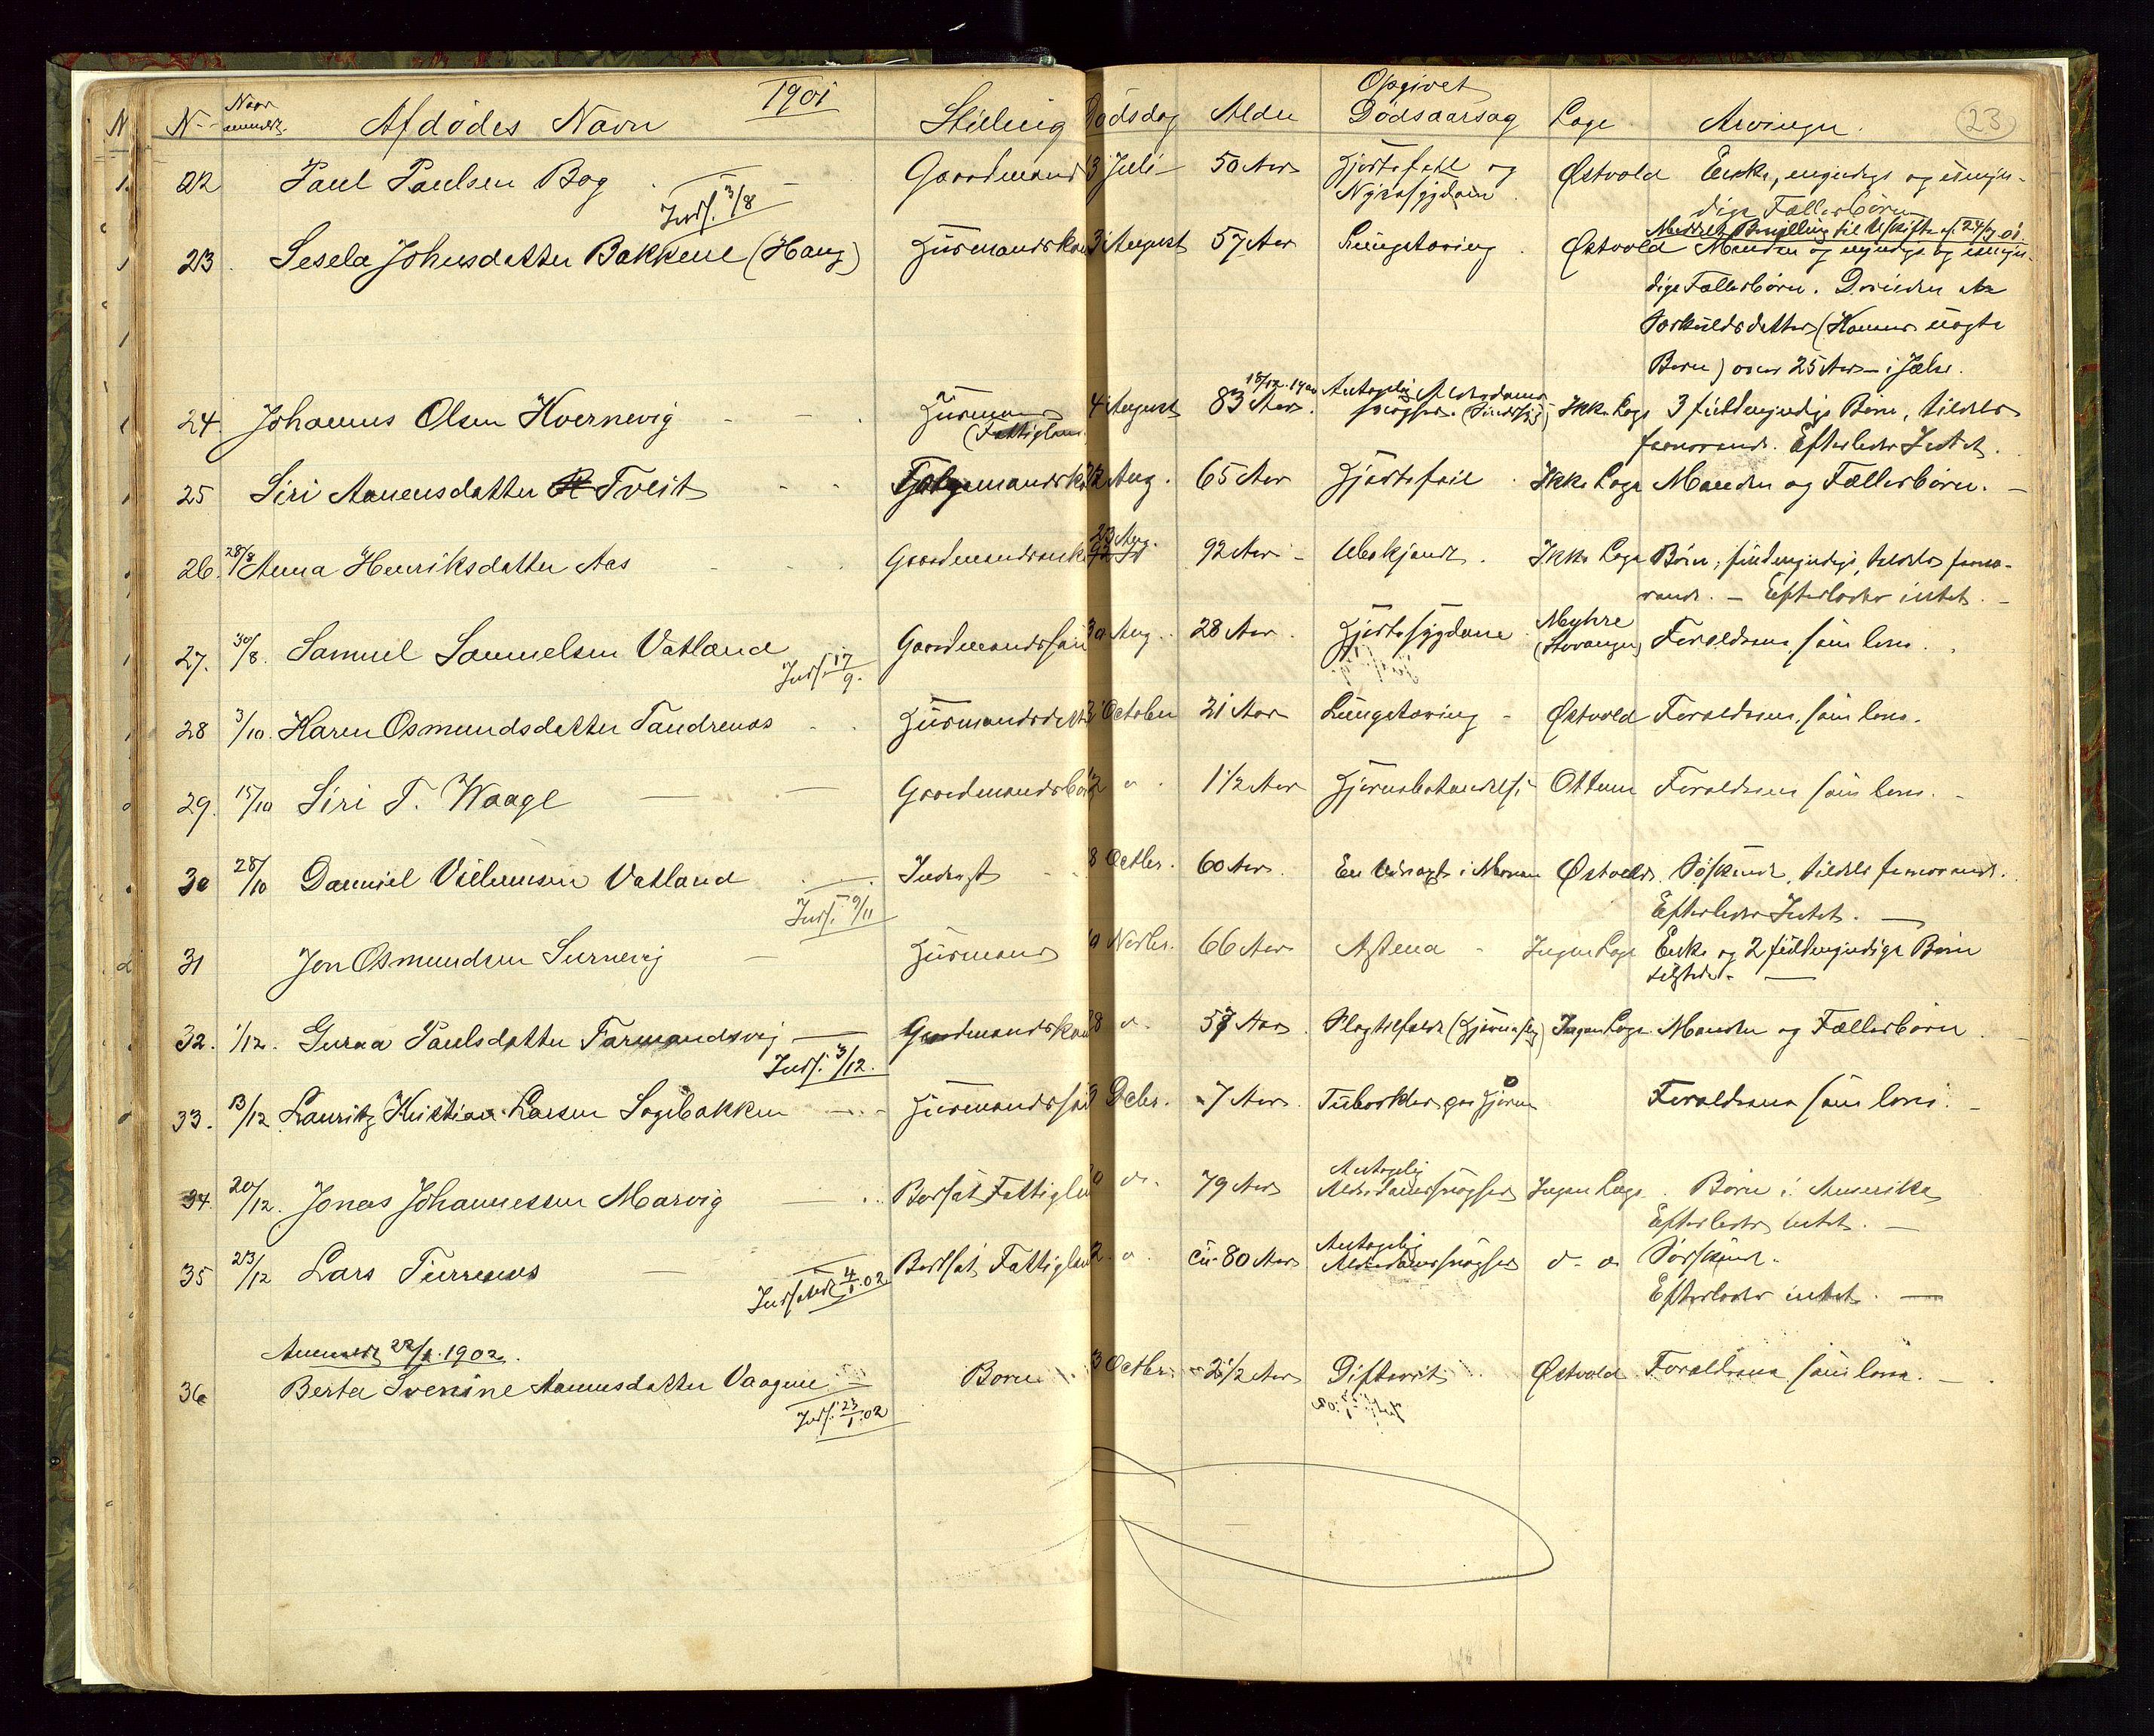 1901
No Naar anmeldt. Afdødes Navn Stilling Dødsdag Alder Opgivet Dødsaarsag Læge Arvinger. 23
22 Paul Paulsen Bog Gaardmand 3 Juli 50 Aar Hjertefeil og Østvold Enke, myndige og umyn-
Inds. 3/8 Nyresygdom dige Fællesbørn
Meddelt Bevilling til Uskifte 01
23 Sesela Johnsdatter Bakkene (Haug) Husmandskone 3 August 57 Aar Lungetæring Østvold Manden og myndige og umyn-
dige Fællesbørn. Desuden
Torkildsdatter (Hannes uægte
Barn) over 25 Aar i Jelse.
24 Johannes Olsen Kvernevig Husmand 4 August 83 Aar Antagelig Alderdoms Ikke Læge 3 fuldmyndige Børn, tildels
(Fattiglem svaghed. fraværende. Efterlader Intet.
25 Siri Aanensdatter Tveit 22 Aug. 65 Aar Hjertefeil Ikke Læge Manden og Fællesbørn.
23 Aug.
26 28/8 Anna Henriksdatter Aas Gaardmandsenke 92 Aar Ubekjendt. Ikke Læge Børn, fuldmyndige, tildels fravæ-
rende. - Efterlader intet.
27. 30/8. Samuel Samuelsen Vatland Gaardmandssøn 30 Aug. 28 Aar Hjertesygdom Myhre (Stavanger) Forældrene som lever.
Inds. 17/9.
28 3/10. Karen Osmundsdatter Tandrevos Husmandsdatt 2 October 21 Aar Lungetæring Østvold Forældrene, som lever.
29. 15/10 Siri T. Waage Gaardmandsbarn 12 " 1 1/2 Aar Hjernebetændelse Ottem Forældrene som lever.
30 28/10 Daniel Villumsen Vatland Inderst 8 Octbr. 60 Aar En Udvext i Maven Østvold. Søskende, tildels fraværende.
Inds. 9/11 Efterlader Intet.
31 Jon Osmundsen Surnevig Husmand Novbr. 66 Aar Astma Ingen Læge Enke og 2 fuldmyndige Børn
32. 1/12. Gurna Paulsdatter Farmandsvig Gaardmandskone 28 " 57 Aar Slagtilfælde Ingen Læge Manden og Fællesbørn
Inds. 3/12.
33. 13/12 Lauritz Kristian Larsen Sagebakken Husmandssøn Debr. 7 Aar Tuberkler paa Hjerne Forældrene som lever.
34. 20/12. Jonas Johannessen Marvig Bortsat Fattiglem " 79 Aar Antagelig Alderdomssvaghed Ingen Læge Børn i Amerika
Efterlader intet.
35 23/12 Lars Bortsat Fattiglem " 80 Aar Antagelig Alderdomssvaghed Søskende.
Indsendt 4/1.02 Efterlader intet.
Anmeldt 22/1.1902.
36 Berta Svenine Aanensdatter Vaagene Barn Octbr. 2 1/2 Aar Difterit Østvold Forældrene som lever.
Inds. 23/1.02